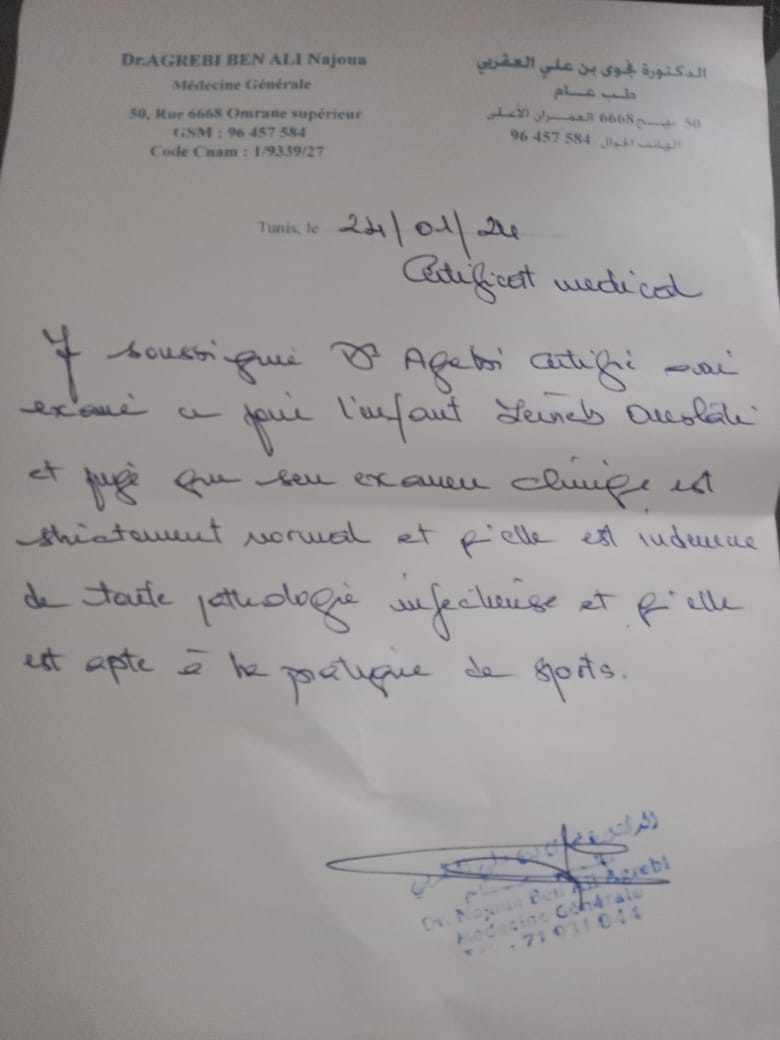 Dr.AGREBI BEN ALI Najoua
Médecine Générale
50, Rue 6668 Omrane supérieur
GSM : 96 457 584
Code Cnam : 1/9339/27
الدكتورة نجوى بن علي العقربي
طب عام
50 نهج 6668 العمران الأعلى
الهاتف الجوال 96 457 584
Tunis, le 24/01/24
Certificat medical
soussigné Dr Agebi certifie avoir
examiné ce jour l'enfant Zeineb Oueslati
et jugé que son examen clinique est
strictement normal et qu'elle est indemne
de toute pathologie infectieuse et qu'elle
est apte à la pratique de sports.
Dr. Najoua Ben Ali Agrebi
Médecine Générale